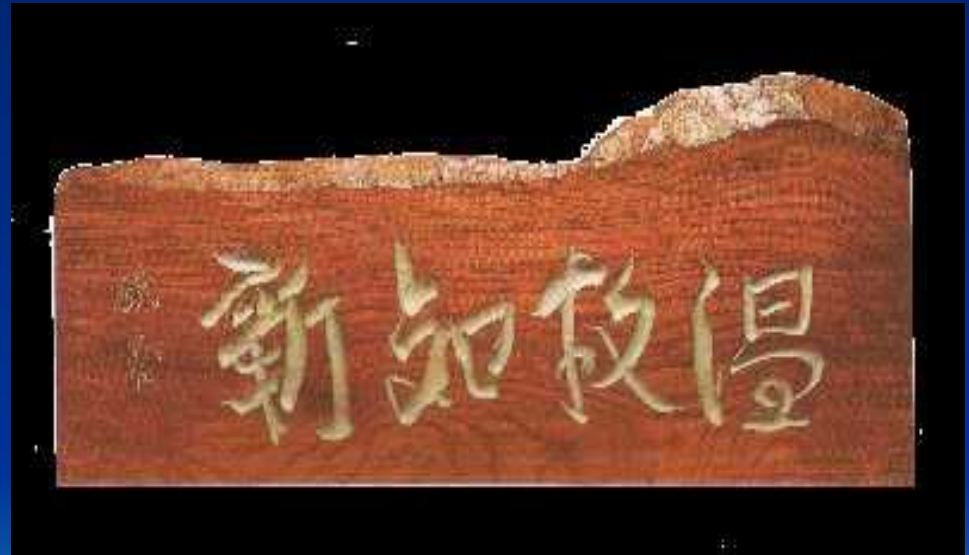 温故知新